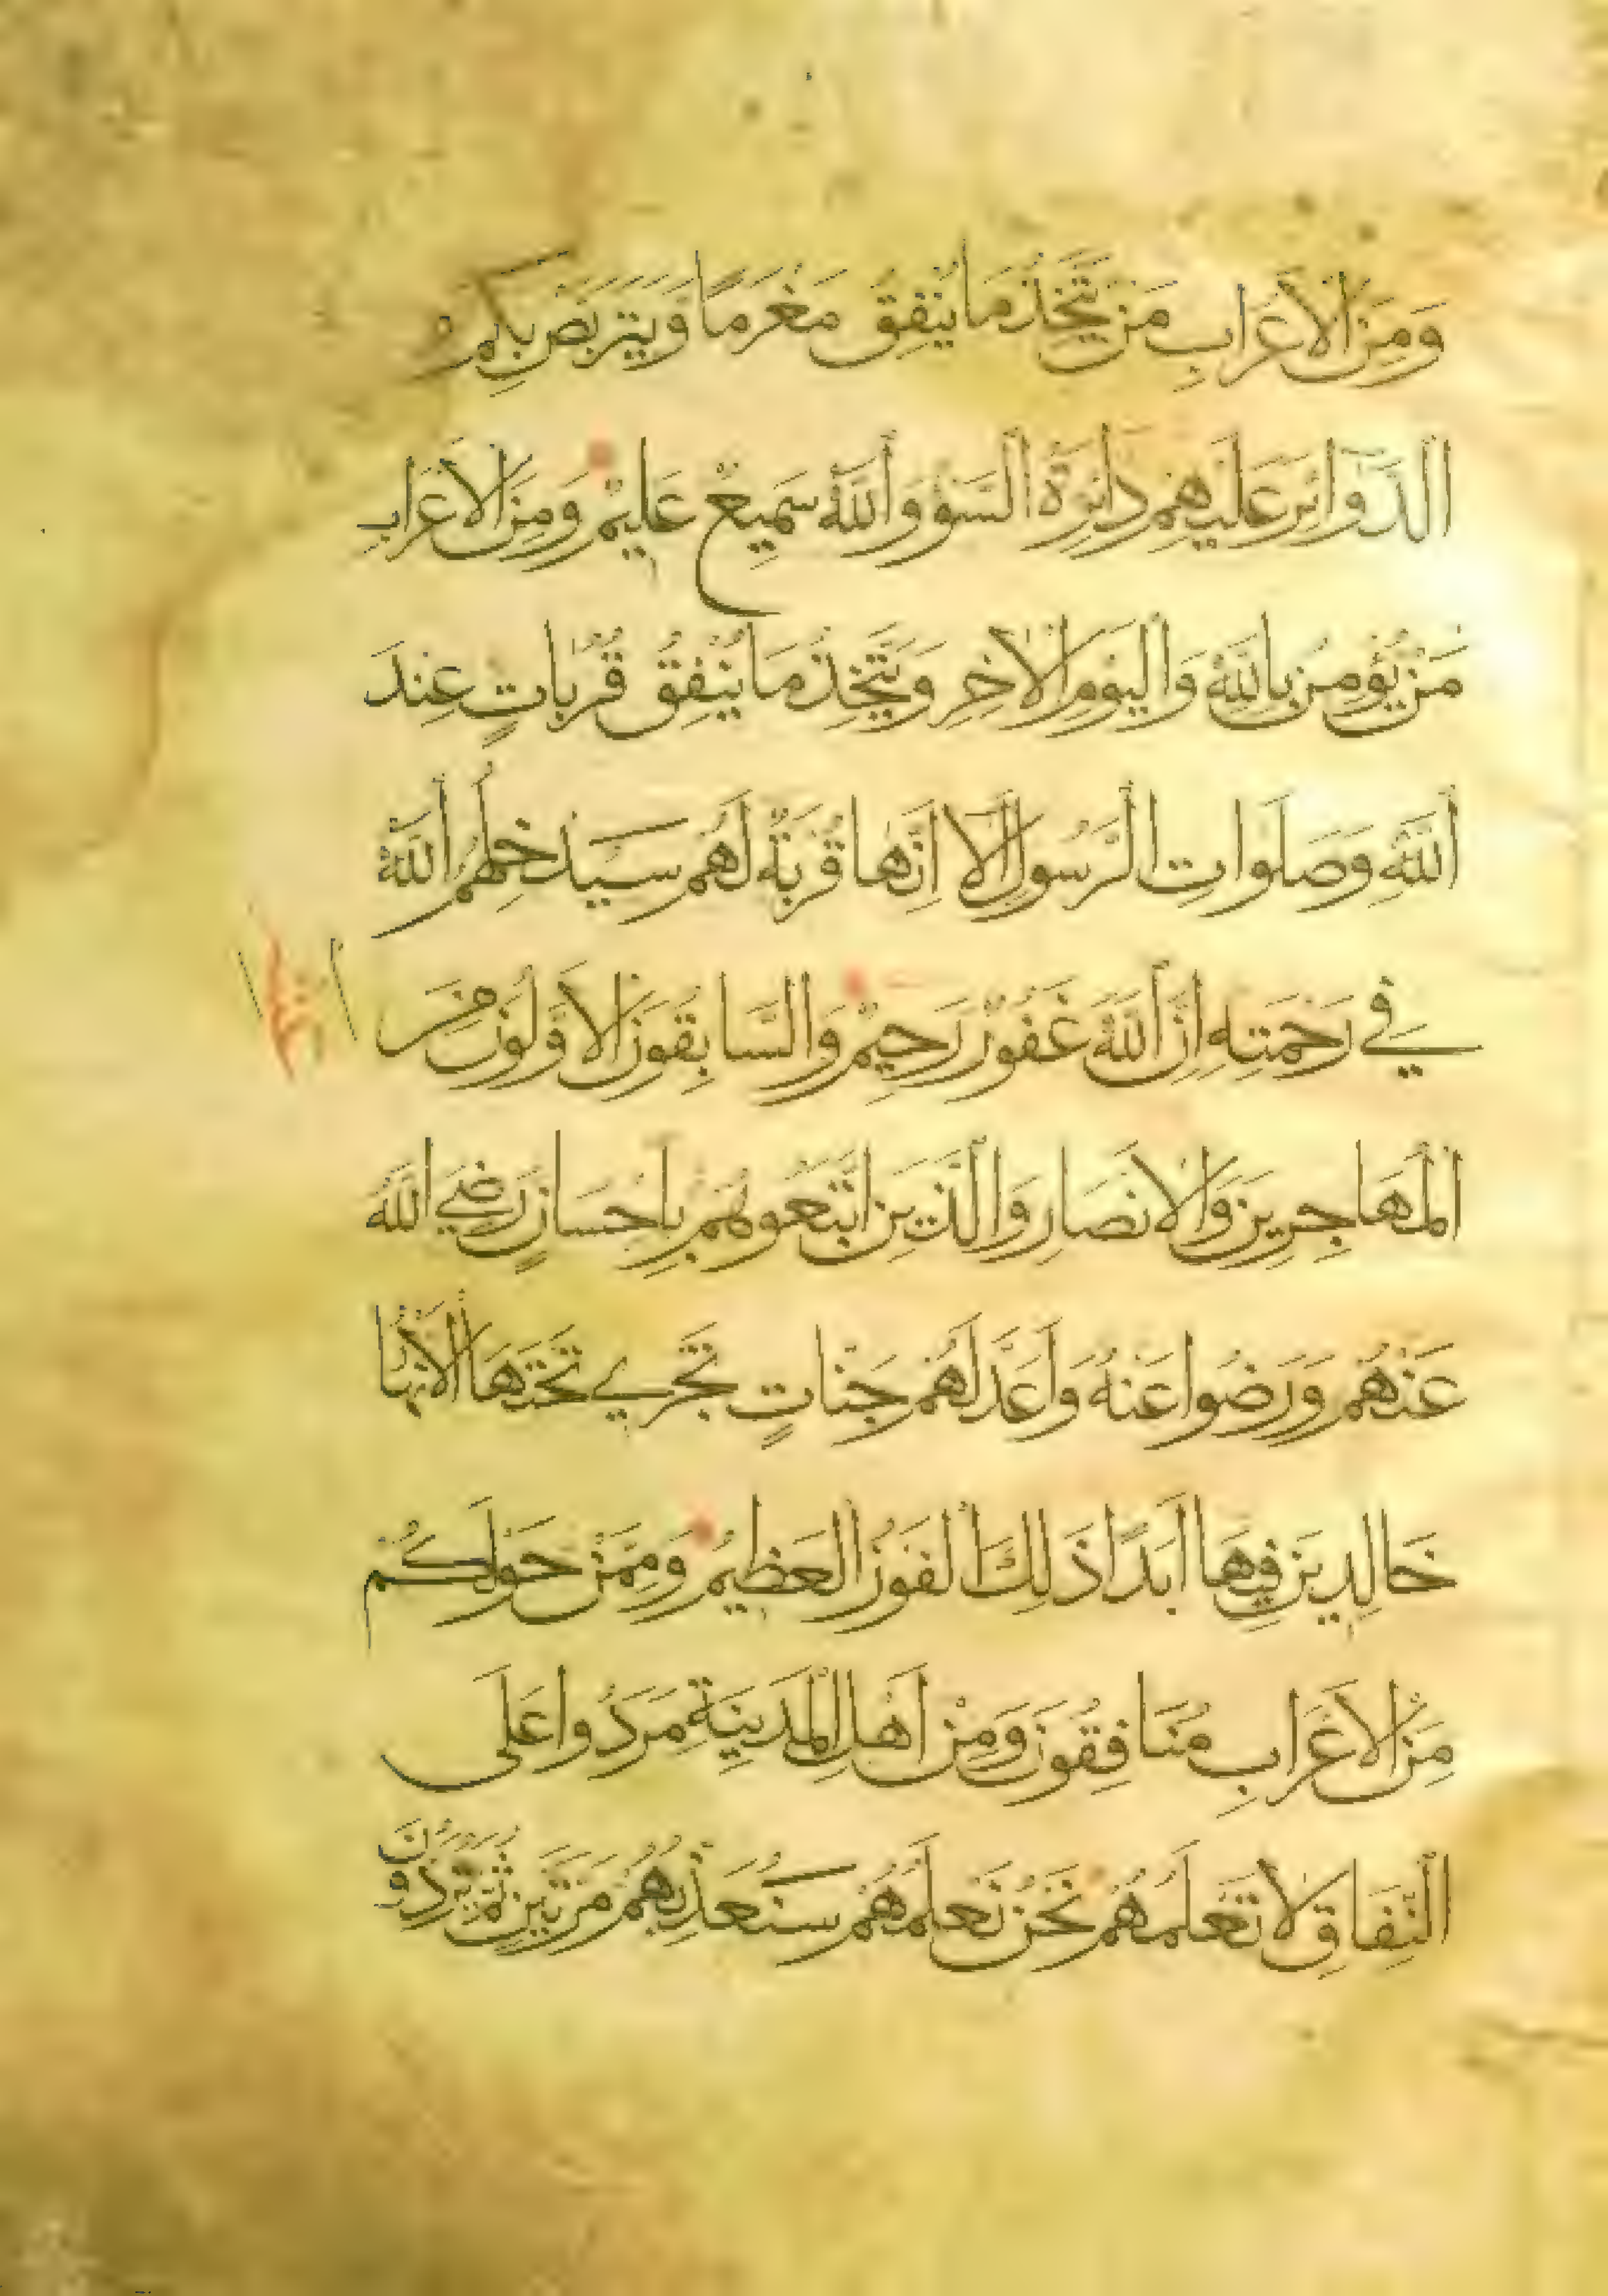 وَمِنَ الْاَعْرَابِ مَنْ يَتَّخِذُ مَا يُنْفِقُ مَغْرَمًا وَيَتَرَبَّصُ بِكُمُ
الدَّوَائِرَ عَلَيْهِمْ دَائِرَةُ السَّوْءِ وَاللّٰهُ سَمِيعٌ عَلِيمٌ وَمِنَ الْاَعْرَابِ
مَنْ يُؤْمِنُ بِاللّٰهِ وَالْيَوْمِ الْاٰخِرِ وَيَتَّخِذُ مَا يُنْفِقُ قُرُبَاتٍ عِنْدَ
اللّٰهِ وَصَلَوَاتِ الرَّسُولِ اَلَا اِنَّهَا قُرْبَةٌ لَهُمْ سَيُدْخِلُهُمُ اللّٰهُ
فِي رَحْمَتِهِ اِنَّ اللّٰهَ غَفُورٌ رَحِيمٌ وَالسَّابِقُونَ الْاَوَّلُونَ مِنَ
الْمُهَاجِرِينَ وَالْاَنْصَارِ وَالَّذِينَ اتَّبَعُوهُمْ بِاِحْسَانٍ رَضِيَ اللّٰهُ
عَنْهُمْ وَرَضُوا عَنْهُ وَاَعَدَّ لَهُمْ جَنَّاتٍ تَجْرِي تَحْتَهَا الْاَنْهَارُ
خَالِدِينَ فِيهَا اَبَدًا ذَلِكَ الْفَوْزُ الْعَظِيمُ وَمِمَّنْ حَوْلَكُمْ
مِنَ الْاَعْرَابِ مُنَافِقُونَ وَمِنْ اَهْلِ الْمَدِينَةِ مَرَدُوا عَلَى
النِّفَاقِ لَا تَعْلَمُهُمْ نَحْنُ نَعْلَمُهُمْ سَنُعَذِّبُهُمْ مَرَّتَيْنِ ثُمَّ يُرَدُّونَ